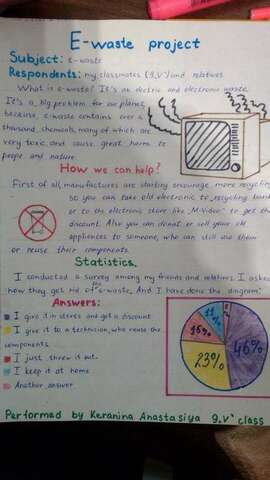 E-waste project
Subject: e-waste
Respondents: my classmates (9„v") and relatives
What is e-waste? It's an electric and electronic waste.
It's a big problem for our planet,
because, e-waste contains over a
thousand chemicals, many of which are
very toxic and cause great harm to
people and nature.
How we can help?
First of all, manufactures are starting encourage more recycling
so you can take old electronic to recycling bank
or to the electronic store like „M-Video" to get the
discount. Also you can donat or sell your old
appliances to someone, who can still use them
or reuse their components.
Statistics.
I conducted a survey among my friends and relatives. I asked
how they get rid of the e-waste. And I have done the diagram:
Answers:
I give it in stores and get a discount
I give it to a technician, who reuse the
components
I just threw it out.
I keep it at home
Another answer
46%
23%
15%
Performed by Keranina Anastasiya 9„v" class